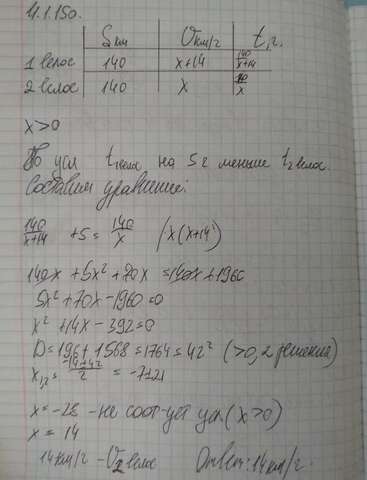 4.1.150.
S км | V км/г | t, г.
1 велос | 140 | x+14 | 140/x+14
2 велос | 140 | x | 140/x
x>0
По усл t1 велос на 5 г меньше t2 велос.
Составим уравнение:
140/x+14 +5 = 140/x /x(x+14)
140x + 5x² + 70x = 140x + 1960
5x² + 70x - 1960 = 0
x² + 14x - 392 = 0
D = 196 + 1568 = 1764 = 42² (>0, 2 решения)
x1,2 = -14±42/2 = -7±21
x = -28 - не соот-ует усл (x>0)
x = 14
14 км/г - V2 велос Ответ: 14 км/г.